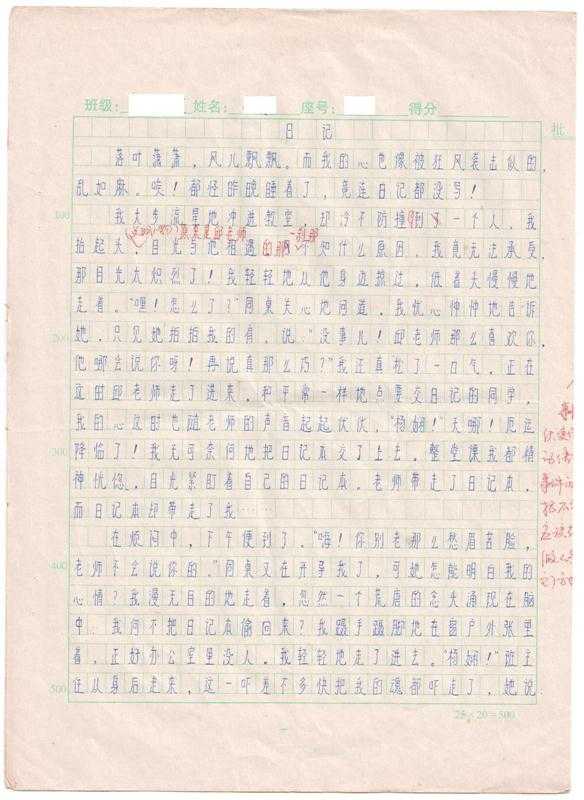 班级: 姓名: 座号: 得分
批
日记
落叶萧萧，风儿飘飘。而我的心也像被狂风袭击似的，
乱如麻。唉！都怪昨晚睡着了，竟连日记都没写！
100
我大步流星地冲进教室，却冷不防撞到一个人，我
竟是邱老师
抬起头，目光与他相遇的那 不知什么原因，我竟无法承受，
那目光太炽烈了！我轻轻地从他身边擦过，低着头慢慢地
走着。“嘿！怎么了？”同桌关心地问道，我忧心忡忡地告诉
200
她，只见她拍拍我的肩，说：“没事儿！邱老师那么喜欢你，
他哪会说你呀！再说真那么巧？”我还真松了一口气。正在
这时邱老师走了进来，和平常一样地点要交日记的同学，
我的心这时也随老师的声音起起伏伏，“杨娴！”天哪！厄运
300
降临了！我无可奈何地把日记本交了上去，整堂课我都精
神恍惚，目光紧盯着自己的日记本。老师带走了日记本，
而日记本却带走了我……
在烦闷中，下午便到了。“嗨！你别老那么愁眉苦脸，
400
老师不会说你的。”同桌又在开导我了，可她怎能明白我的
心情？我漫无目的地走着，忽然一个荒唐的念头涌现在脑
中：我何不把日记本偷回来？我蹑手蹑脚地在窗户外张望
着，正好办公室里没人。我轻轻地走了进去。“杨娴！”班主
500
任从身后走来，这一吓差不多快把我的魂都吓走了，她说
25×20=500